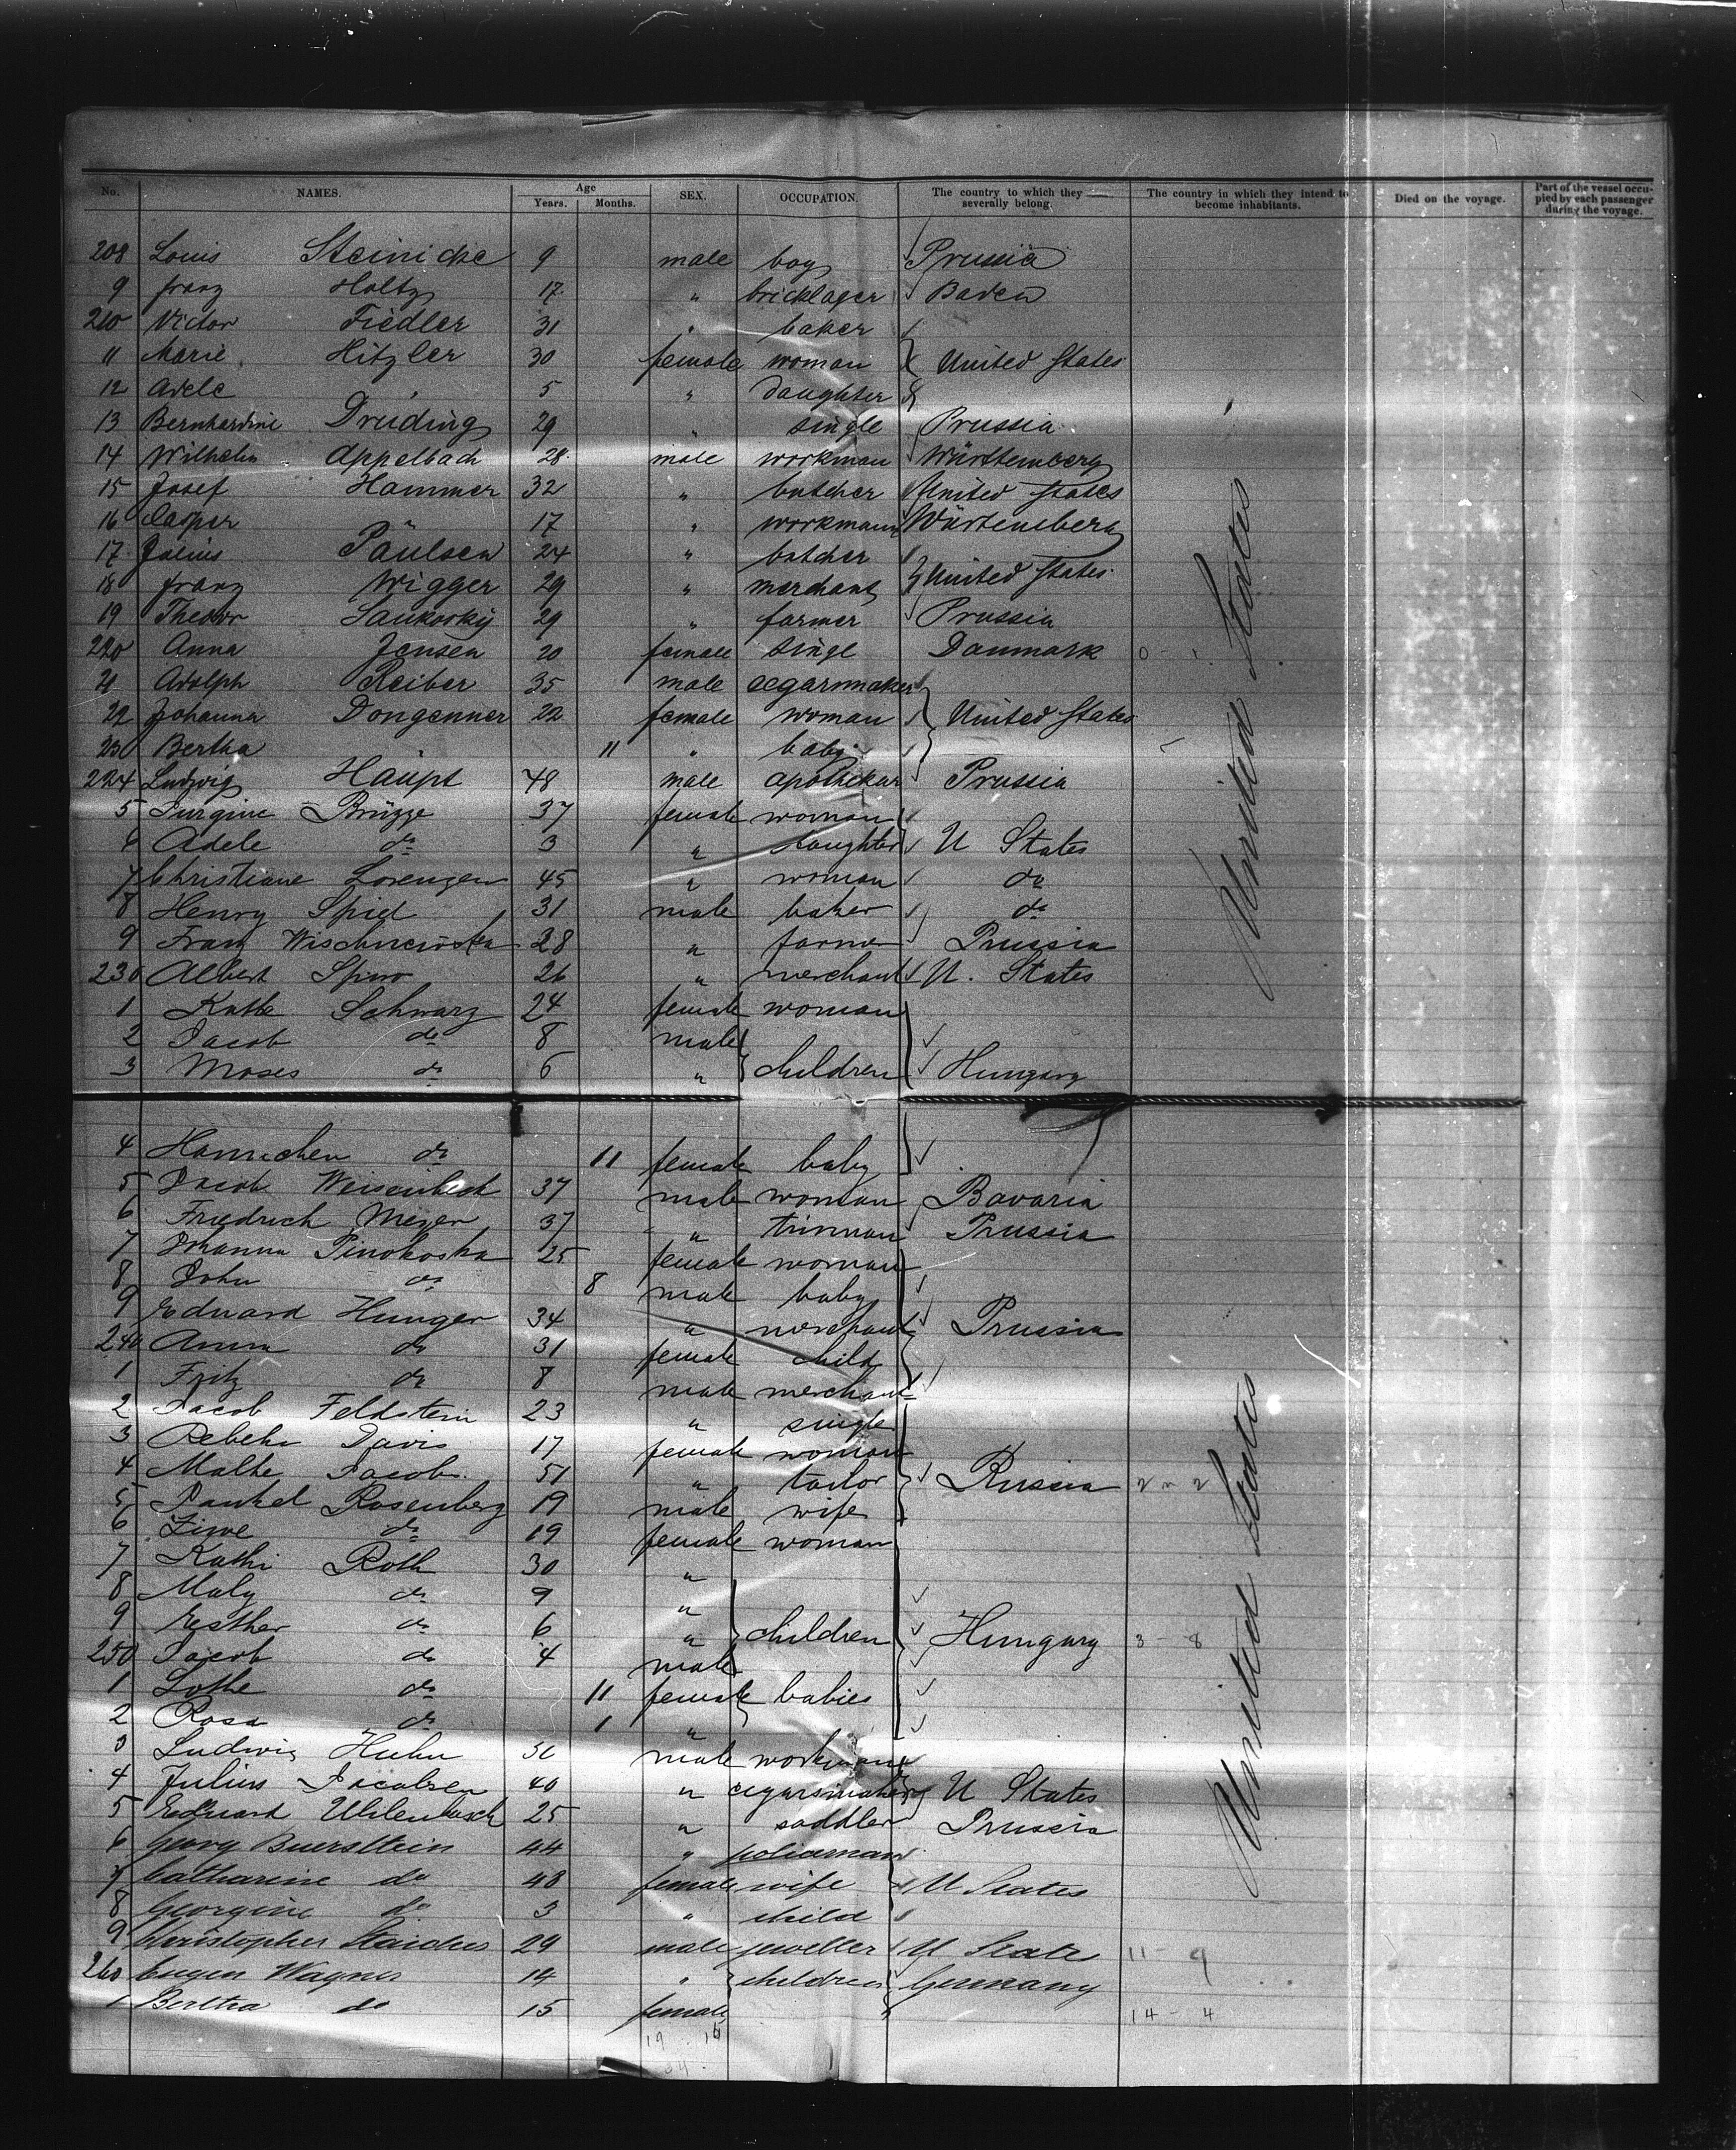 No. NAMES. Age Years. Months. SEX. OCCUPATION. The country to which they severally belong. The country in which they intend to become inhabitants. Died on the voyage. Part of the vessel occupied by each passenger during the voyage.
208 Louis Steinicke 9 male boy Prussia
9 Franz Holtz 17 " bricklager Baden
210 Victor Fiedler 31 " baker
11 Marie Hitzler 30 female woman United States
12 Adele " 5 " daughter
13 Bernhardine Druding 29 " single Prussia
14 Wilhelm Appelbach 28 male workman Württemberg
15 Josef Hammer 32 " butcher United States
16 Casper " 17 " workmann Würtemberg
17 Julius Paulsen 24 " butcher
18 Franz Wigger 29 " merchant United States
19 Theodor 29 " farmer Prussia
220 Anna Jensen 20 female singl Danmark 0 - 1
21 Adolph Reiber 35 male cegarrmaker
22 Johanna Dongenner 22 female woman United States
23 Bertha 11 " baby
224 Ludwig Haupt 48 male apotheker Prussia
5 Brügge 37 female woman
6 Adele do 3 " daughter U States
7 Christiane Lorenzen 45 " woman do
8 Henry Spiel 31 male baker do
9 Franz 28 " farmer Prussia
230 Albert Spiro 26 " merchant U. States
1 Kathe Schwarz 24 female woman
2 Jacob do 8 male
3 Moses do 6 " children Hungary
4 Hannchen do 11 female baby
5 Jacob 37 male woman Bavaria
6 Friedrich Meyer 37 " Prussia
7 Johanna Pinokoska 25 female woman
8 John do 8 male baby
9 Eduard Hunger 34 " merchant Prussia
240 Anna do 31 female child
1 Fritz do 8 male merchant
2 Jacob Feldstein 23 " single
3 Davis 17 female woman
4 Malke Jacob 51 " tailor Russia 2 " 2
5 Rosenberg 19 male wife
6 Ziwe do 19 female woman
7 Kathi Roth 30 "
8 Maly do 9 "
9 Esther do 6 " children Hungary 3 - 8
250 Jacob do 4 male
1 Lothe do 11 female babies
2 Rosa do 1 "
3 Ludwig Huhn male workman
4 Julius Jacobsen 40 " cigarsmaker U States
5 Eduard Uhlenbusch 25 " saddler Prussia
6 Georg 44 " policeman
7 Catharine do 48 female wife U States
8 Georgine do 3 " child
9 Christopher 29 male jeweller U State 11 - 9
260 Eugen Wagner 14 " children Germany
1 Bertha do 15 female 14 - 4
United States
United States